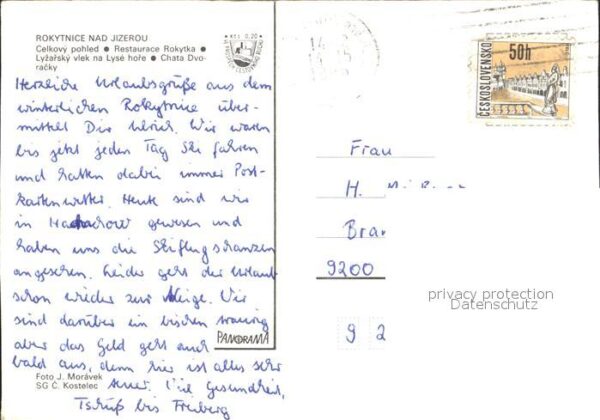 ROKYTNICE NAD JIZEROU
Celkový pohled ● Restaurace Rokytka ●
Lyžařský vlek na Lysé hoře ● Chata Dvo-
račky
Kčs 0,20
Herzliche Urlaubsgrüße aus dem
winterlichen Rokytnice über-
mittelt Dir Ulrich. Wir waren
bis jetzt jeden Tag Ski fahren
und hatten dabei immer Post-
kartenwetter. Heute sind wir
in Harrachow gewesen und
haben uns die Skiflugschanzen
angesehen. Leider geht der Urlaub
schon wieder zur Neige. Wir
sind darüber ein bischen traurig
aber das Geld geht auch
bald aus, denn hier ist alles sehr
teuer. Viel Gesundheit,
Tschüß bis Freiberg
PANORAMA
Foto J. Morávek
SG Č. Kostelec
ČESKOSLOVENSKO
50h
Frau
H.
Bra
9200
privacy protection
Datenschutz
9 2